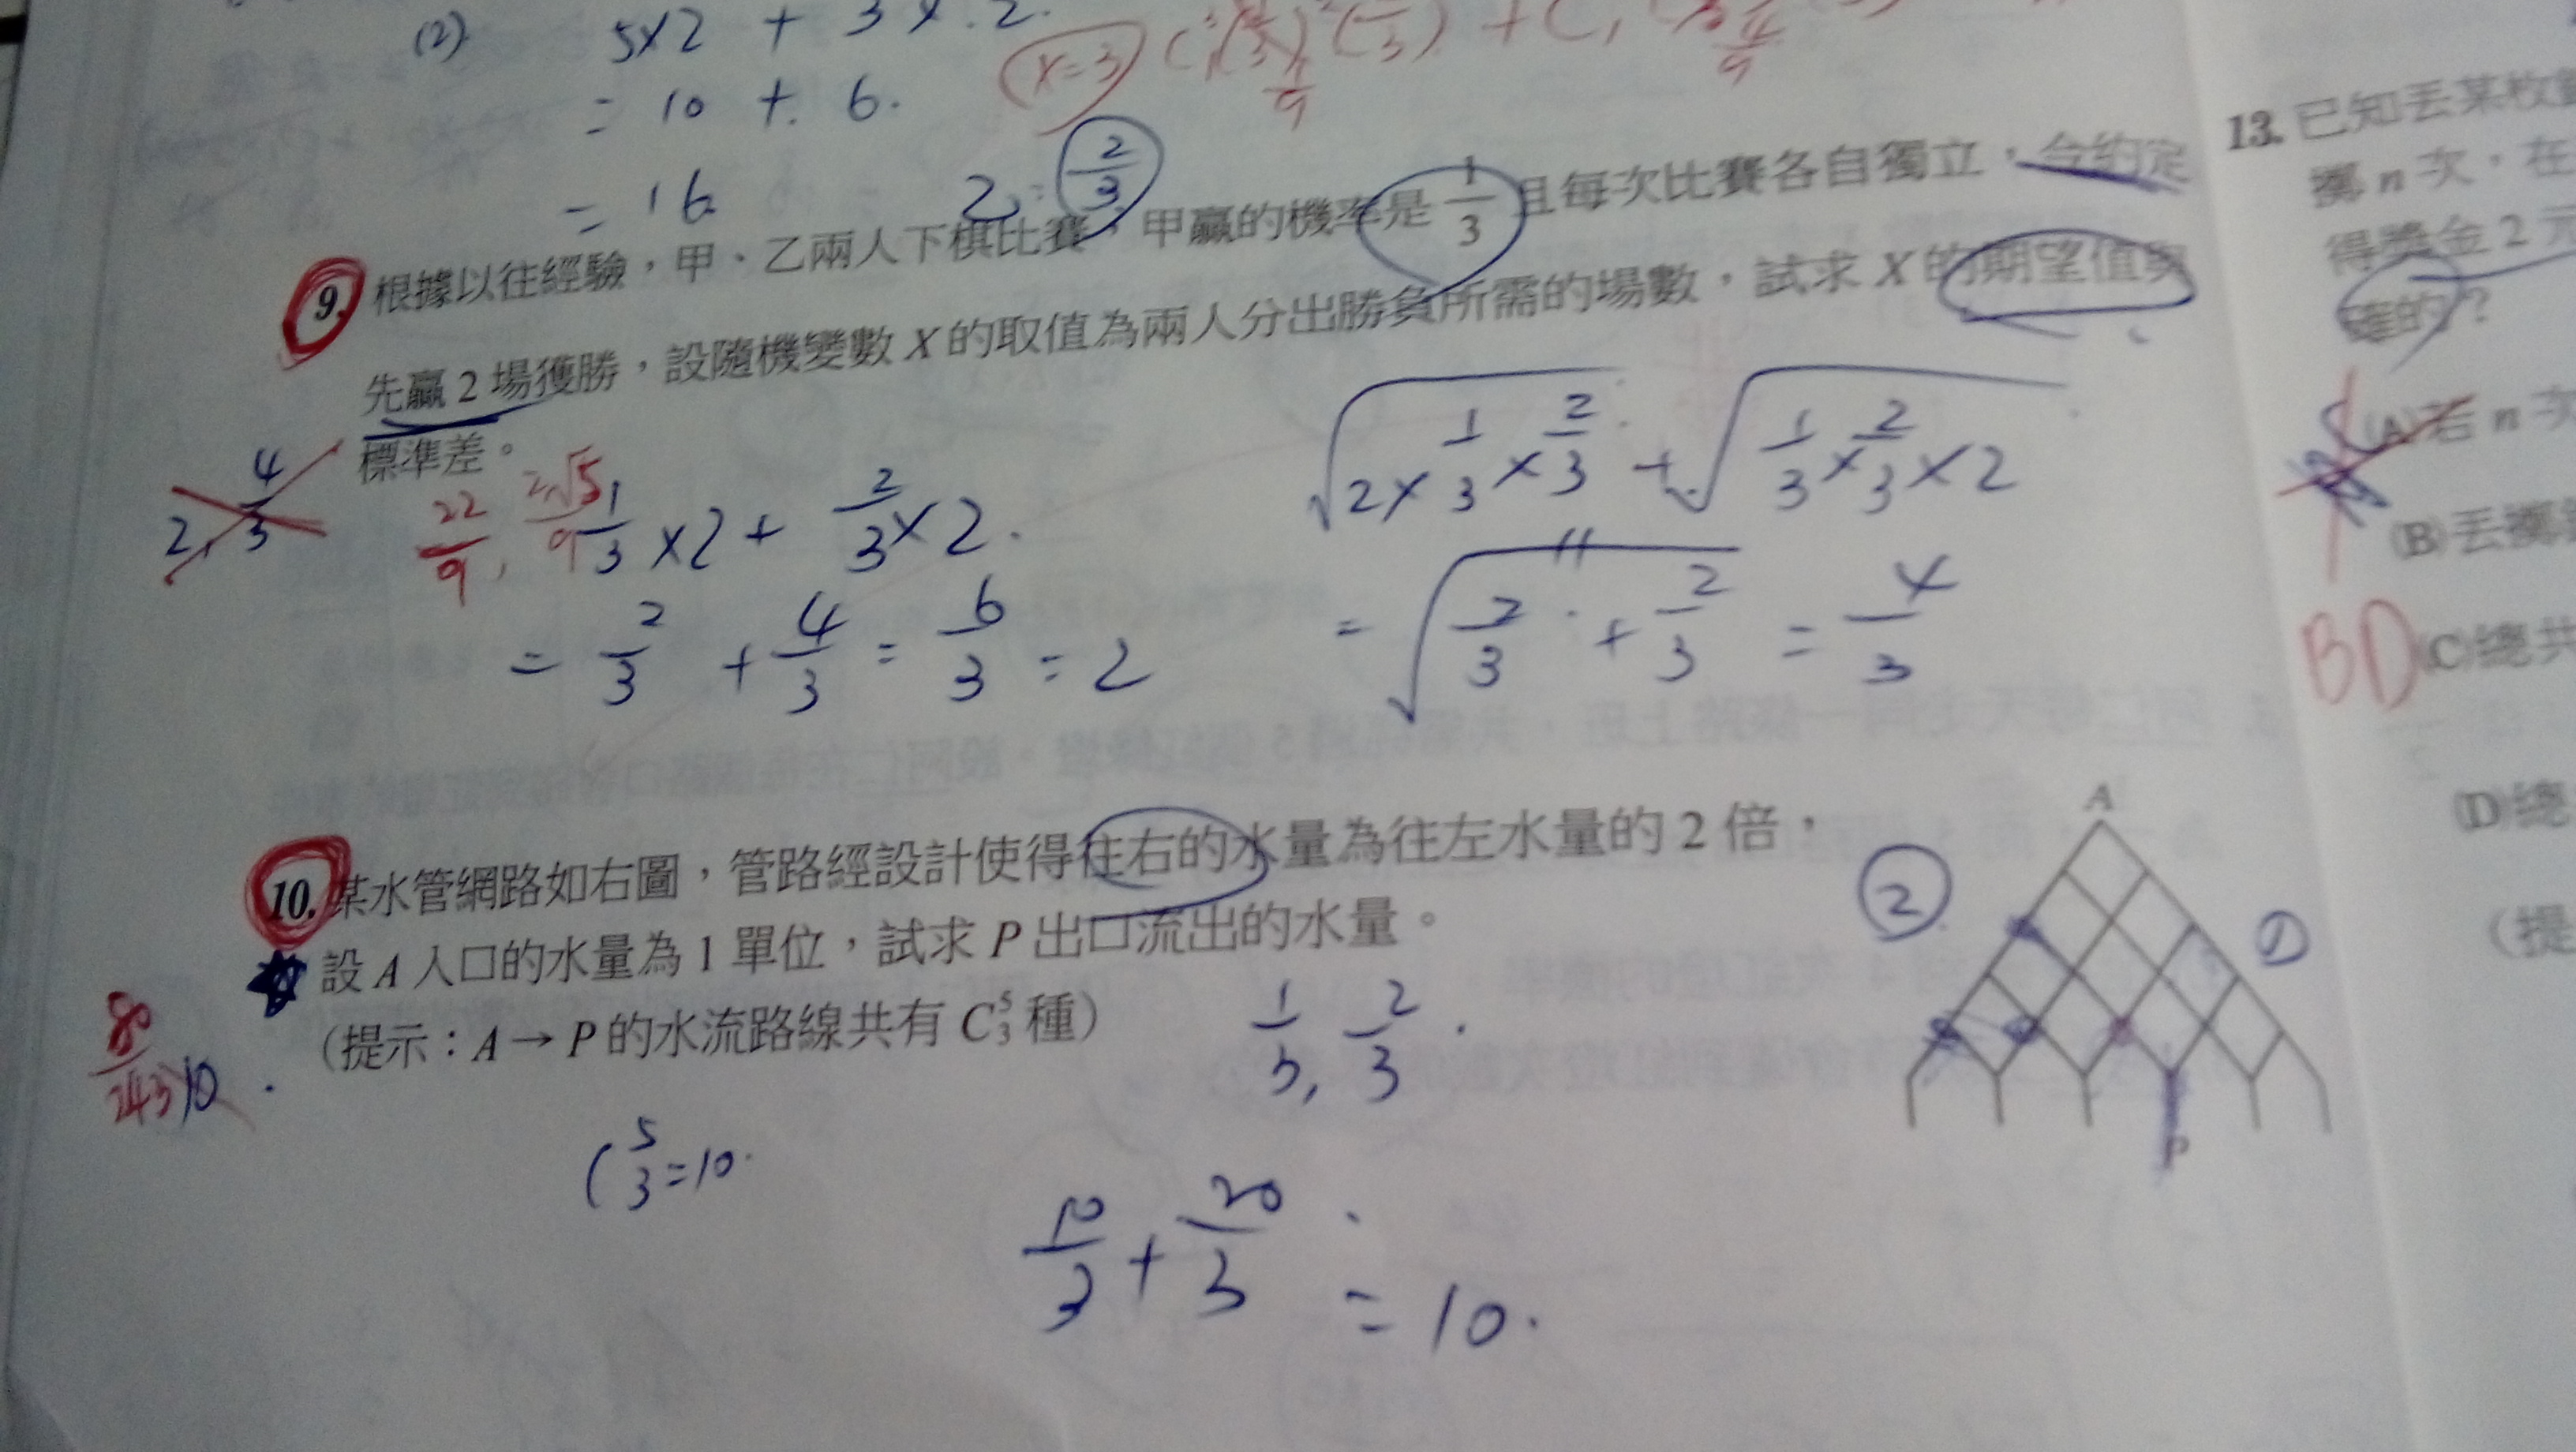 (2) 5×2 + 3×2.
= 10 + 6.
= 16
(x=3)
1/9
4/9
乙: 2/3
9. 根據以往經驗,甲、乙兩人下棋比賽,甲贏的機率是 1/3 且每次比賽各自獨立,今約定
先贏 2 場獲勝,設隨機變數 X 的取值為兩人分出勝負所需的場數,試求 X 的期望值與
標準差。
2, 4/3
22/9, 2√5/9
1/3 ×2 + 2/3 ×2.
= 2/3 + 4/3 = 6/3 = 2
√(2×1/3×2/3) + √(1/3×2/3×2)
= √(2/3 + 2/3) = 4/3
10. 某水管網路如右圖,管路經設計使得往右的水量為往左水量的 2 倍,
設 A 入口的水量為 1 單位,試求 P 出口流出的水量。
(提示:A → P 的水流路線共有 C⁵₃ 種)
80/243
10.
1/3, 2/3.
C⁵₃ = 10.
10/3 + 20/3
= 10.
A
②
①
P
13. 已知丟某枚
擲 n 次,在
得獎金 2 元
確的?
(A) 若 n 次
(B) 丟擲
BD
(C) 總共
(D) 總
(提